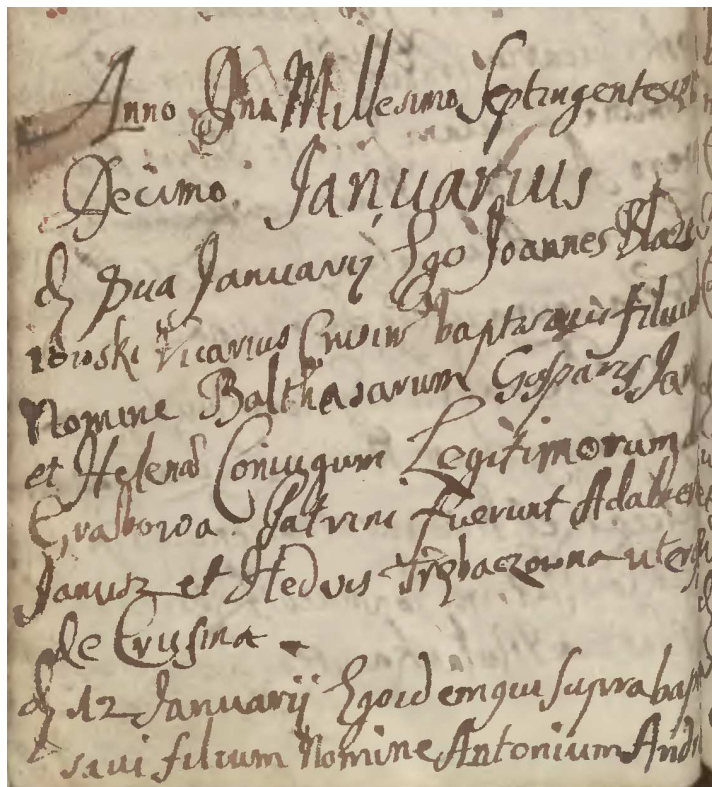 Anno Dni Millesimo Septingentesi
Decimo. Januarius
d pua Januarij Ego Joannes Blaze
iowski Vicarius Crusin baptisavi filium
Nomine Balthasarum Gasparis Jan
et Helena Coniugum Legitimorum
Grabowa. Patrini fuerunt Adalber
Janusz et Hedvis Trębaczowna uterq
de Crusina
d 12 Januarij Ego idem qui supra bap
savi filium Nomine Antonium Andr